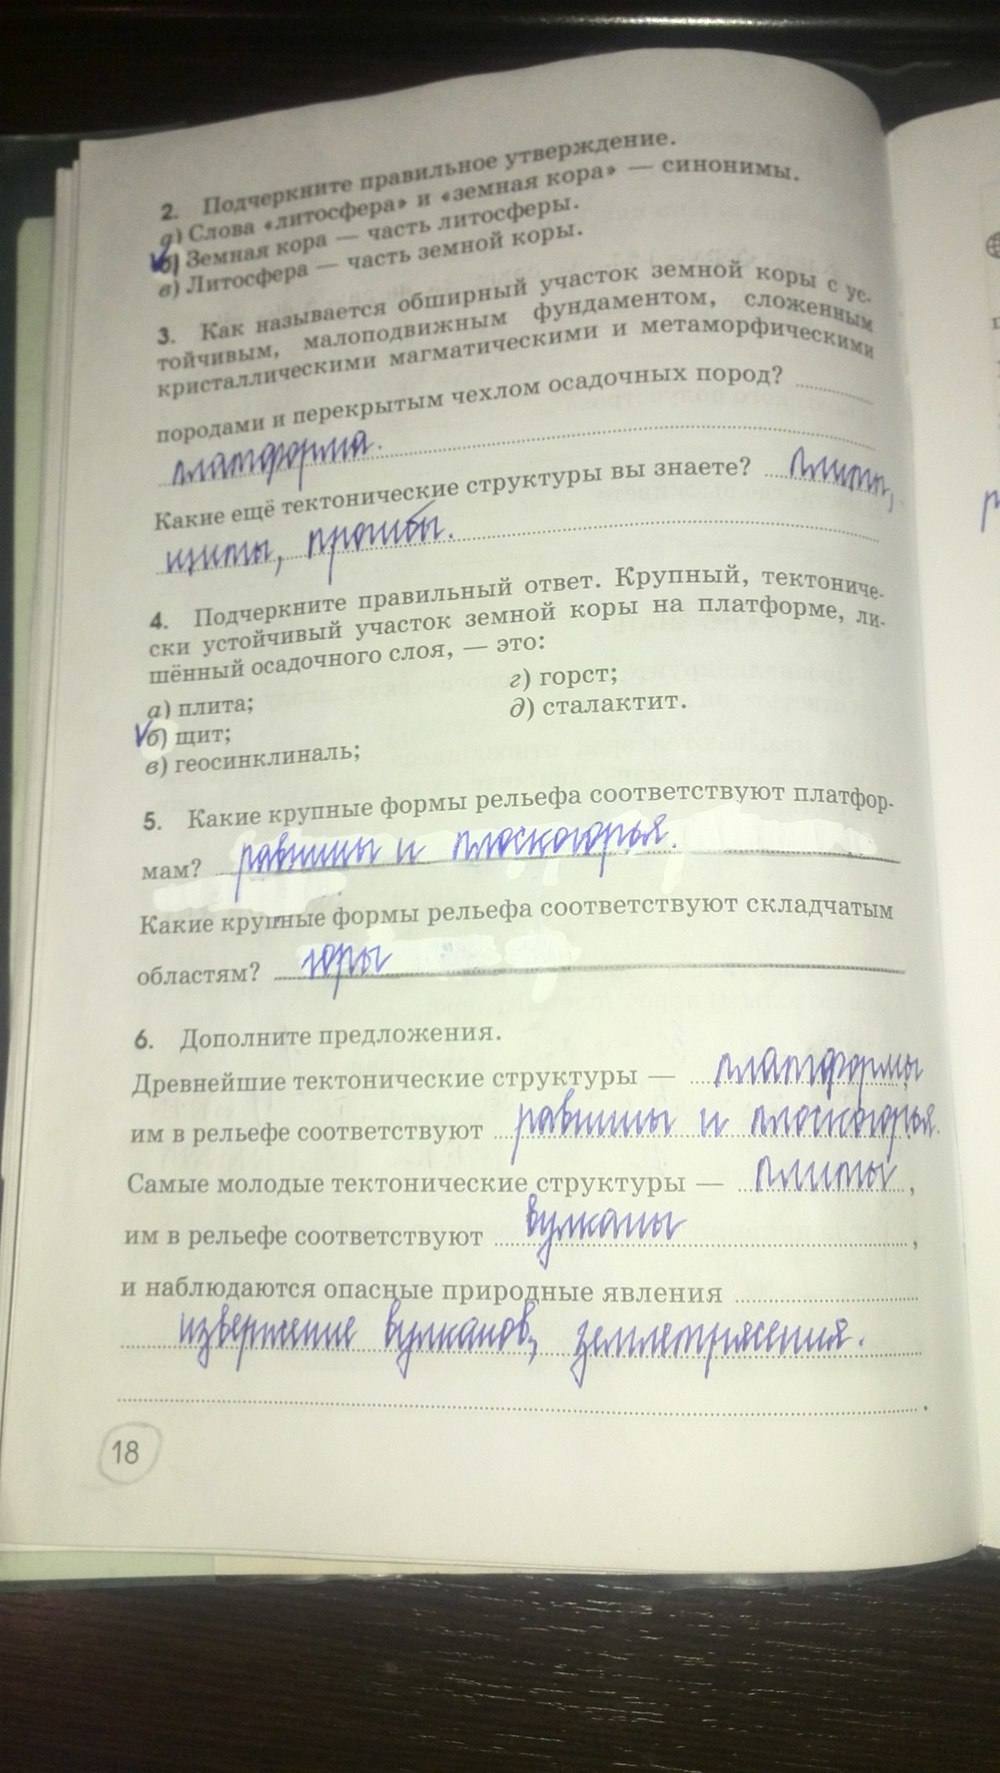 2. Подчеркните правильное утверждение.
а) Слова «литосфера» и «земная кора» — синонимы.
б) Земная кора — часть литосферы.
в) Литосфера — часть земной коры.
3. Как называется обширный участок земной коры с ус-
тойчивым, малоподвижным фундаментом, сложенным
кристаллическими магматическими и метаморфическими
породами и перекрытым чехлом осадочных пород?
платформа.
Какие ещё тектонические структуры вы знаете? плиты,
щиты, прогибы.
4. Подчеркните правильный ответ. Крупный, тектониче-
ски устойчивый участок земной коры на платформе, ли-
шённый осадочного слоя, — это:
а) плита;
б) щит;
в) геосинклиналь;
г) горст;
д) сталактит.
5. Какие крупные формы рельефа соответствуют платфор-
мам? равнины и плоскогорья.
Какие крупные формы рельефа соответствуют складчатым
областям? горы
6. Дополните предложения.
Древнейшие тектонические структуры — платформы,
им в рельефе соответствуют равнины и плоскогорья.
Самые молодые тектонические структуры — плиты,
им в рельефе соответствуют вулканы,
и наблюдаются опасные природные явления
извержение вулканов, землетрясения.
18